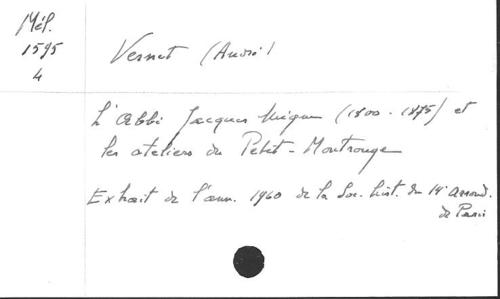 Mél.
1595
4
Vernet (André)
L'Abbé Jacques Migne (1800-1875) et
les ateliers du Petit-Montrouge
Extrait de l'ann. 1960 de la Soc. hist. du 14e arrond.
de Paris